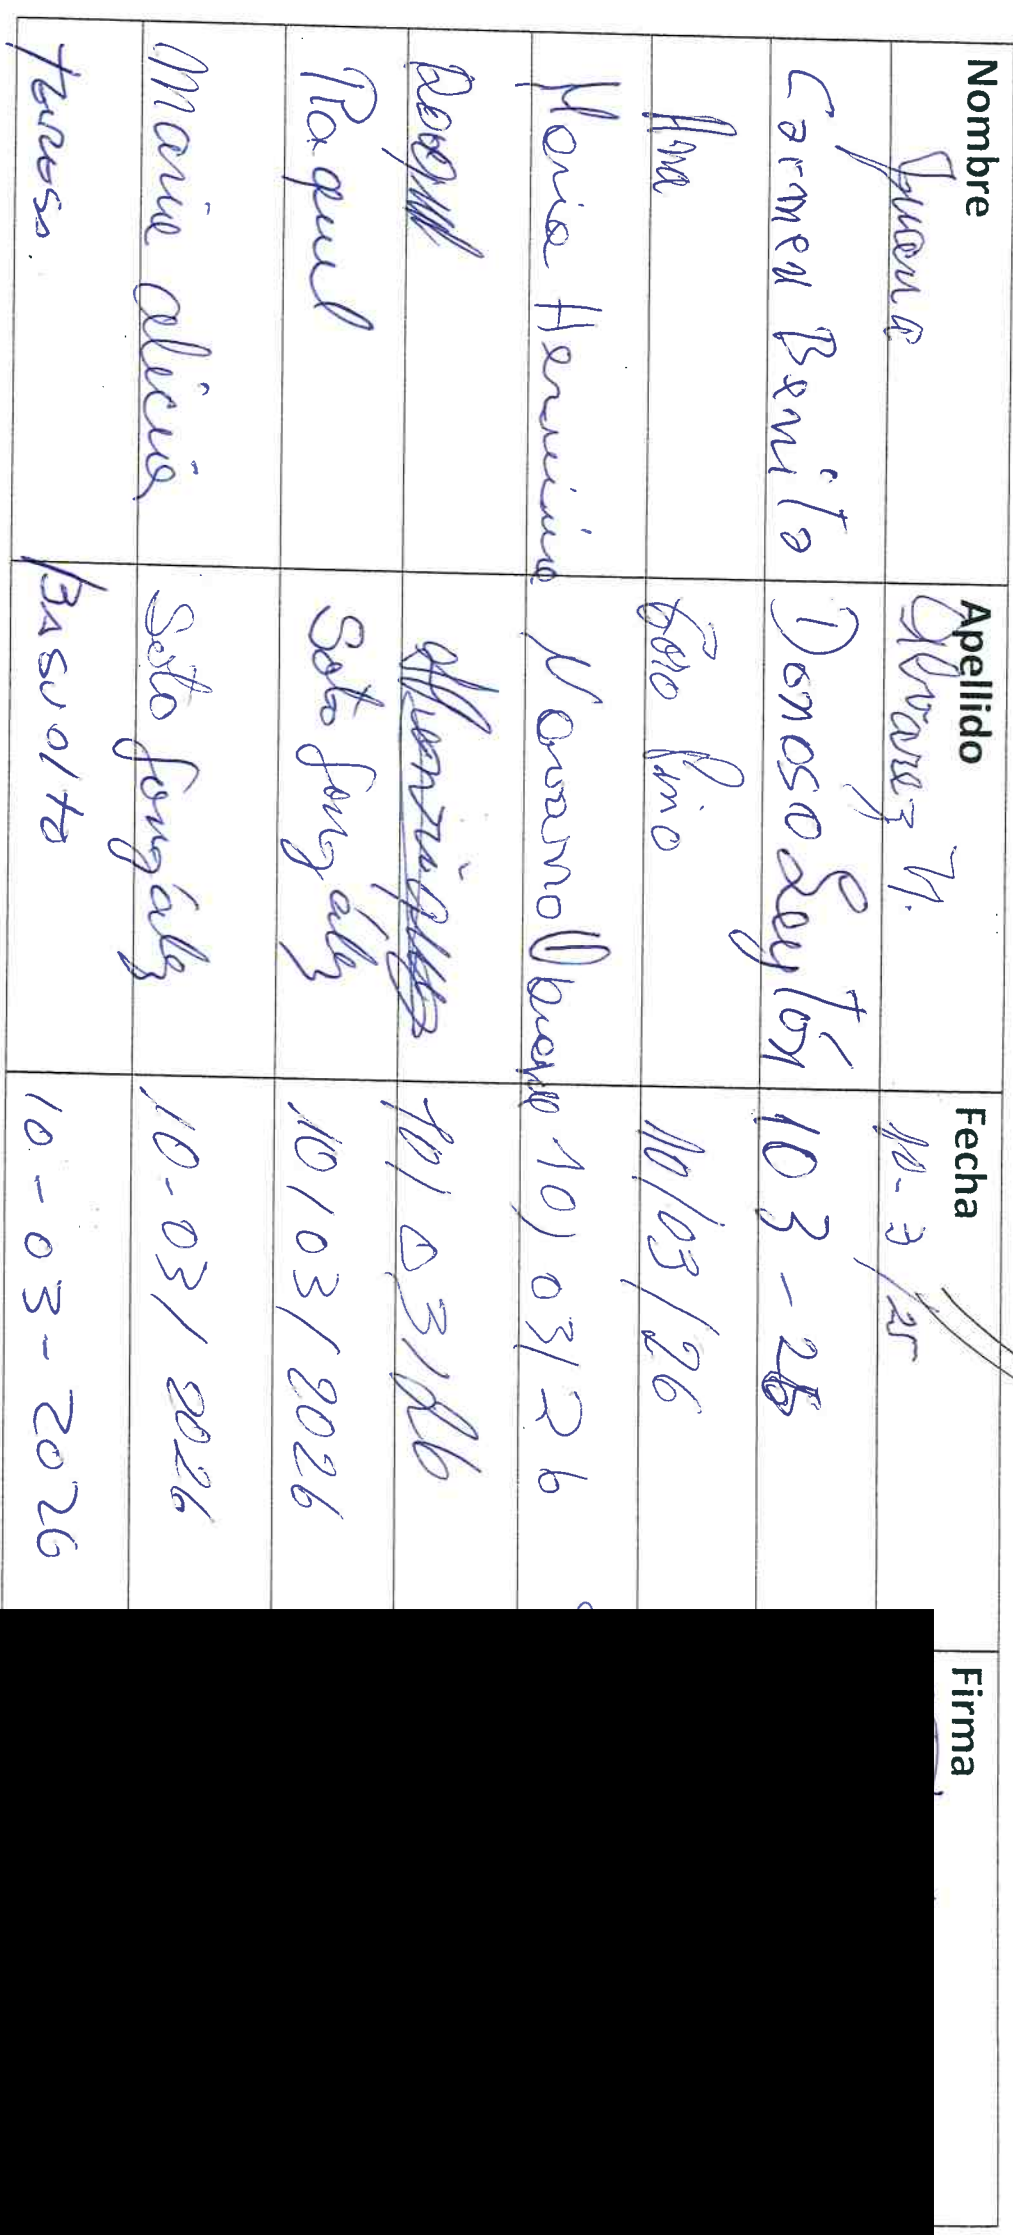 Nombre Apellido Fecha Firma
Juana Alvarez M. 10-3/25
Carmen Benito Donoso Leytón 10 3-26
Ana Toro Pino 10/03/26
Maria Herminia Navarro 10/03/26
10/03/26
Raquel Soto González 10/03/2026
Maria alicia Soto González 10-03/2026
Teresa. Basualto 10-03-2026